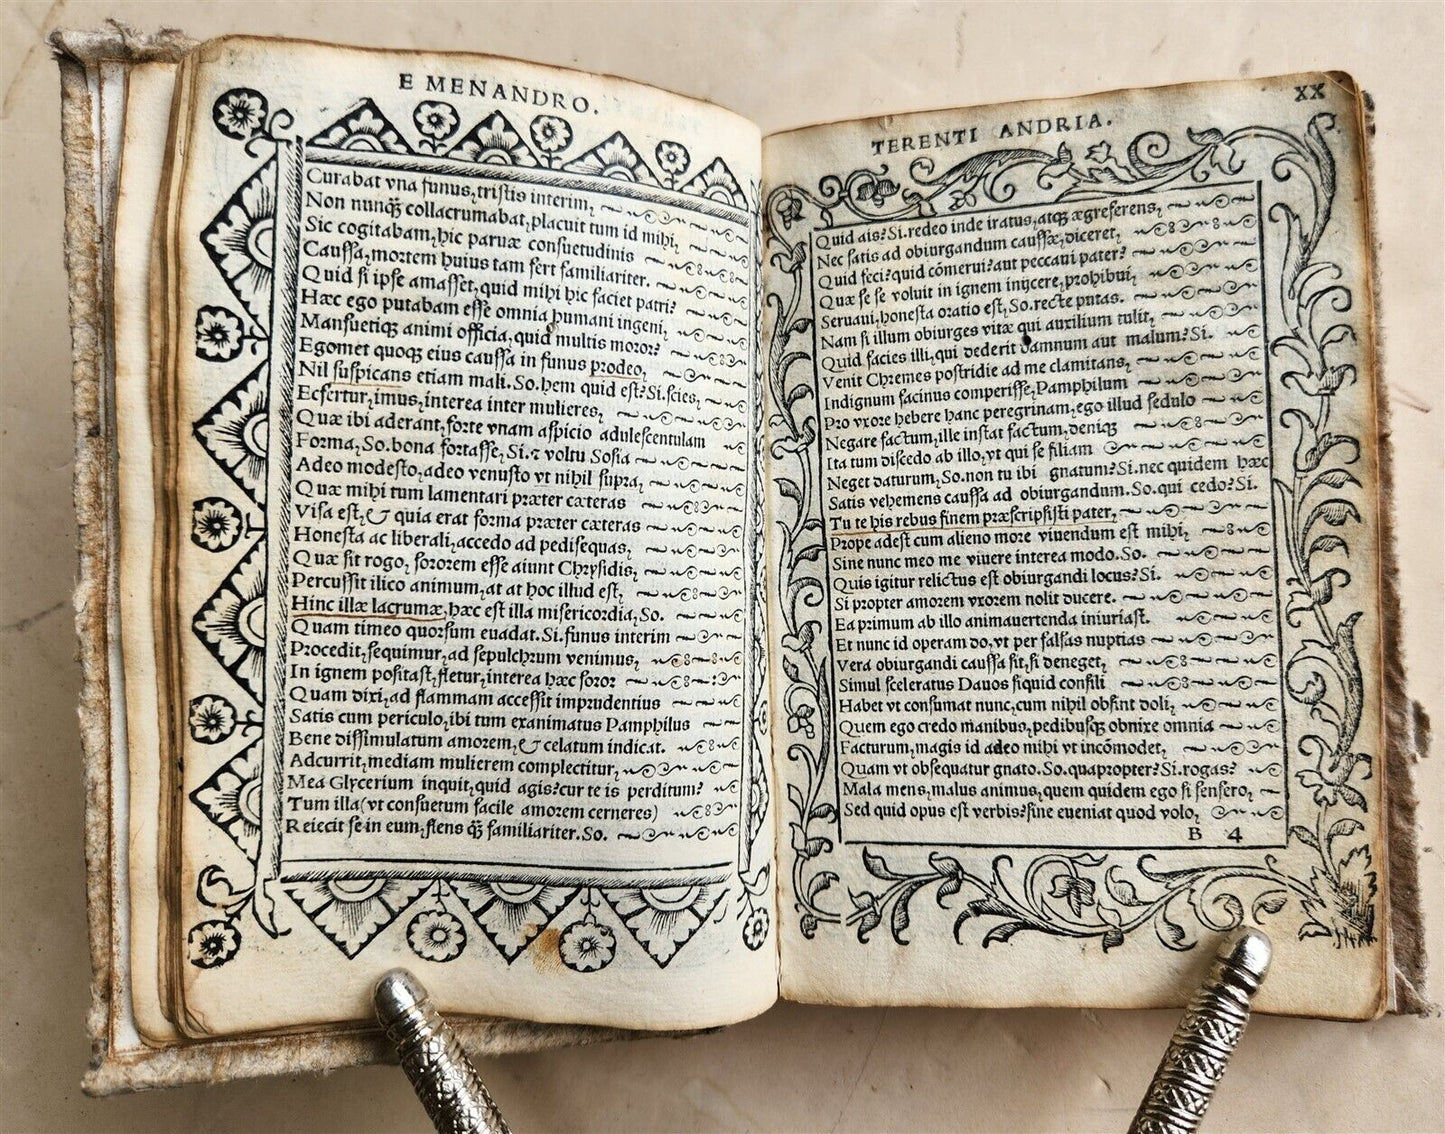 E MENANDRO.
Curabat vna funus, tristis interim,
Non nunq̃ collacrumabat, placuit tum id mihi,
Sic cogitabam, hic paruæ consuetudinis
Caussa, mortem huius tam fert familiariter.
Quid si ipse amasset, quid mihi hic faciet patri?
Hæc ego putabam esse omnia humani ingeni,
Mansuetiq; animi officia, quid multis moror?
Egomet quoq; eius caussa in funus prodeo,
Nil suspicans etiam mali. So. hem quid est? Si. scies,
Ecfertur, imus, interea inter mulieres,
Quæ ibi aderant, forte vnam aspicio adulescentulam
Forma, So. bona fortasse, Si. & voltu Sosia
Adeo modesto, adeo venusto vt nihil supra,
Quæ mihi tum lamentari præter cæteras
Visa est, & quia erat forma præter cæteras
Honesta ac liberali, accedo ad pedisequas,
Quæ sit rogo, sororem esse aiunt Chrysidis,
Percussit ilico animum, at at hoc illud est,
Hinc illæ lacrumæ, hæc est illa misericordia, So.
Quam timeo quorsum euadat. Si. funus interim
Procedit, sequimur, ad sepulchrum venimus,
In ignem posita st, fletur, interea hæc soror
Quam dixi, ad flammam accessit imprudentius
Satis cum periculo, ibi tum exanimatus Pamphilus
Bene dissimulatum amorem, & celatum indicat.
Adcurrit, mediam mulierem complectitur,
Mea Glycerium inquit, quid agis? cur te is perditum?
Tum illa (vt consuetum facile amorem cerneres)
Reiecit se in eum, flens q̃ familiariter. So.
XX
TERENTI ANDRIA.
Quid ais? Si. redeo inde iratus, atq; ægreferens,
Nec satis ad obiurgandum caussæ, diceret,
Quid feci? quid cõmerui? aut peccaui pater?
Quæ se se voluit in ignem iniicere, prohibui,
Seruaui, honesta oratio est, So. recte putas.
Nam si illum obiurges vitæ qui auxilium tulit,
Quid facies illi, qui dederit damnum aut malum? Si.
Venit Chremes postridie ad me clamitans,
Indignum facinus comperisse, Pamphilum
Pro vxore hebere hanc peregrinam, ego illud sedulo
Negare factum, ille instat factum, deniq;
Ita tum discedo ab illo, vt qui se filiam
Neget daturum, So. non tu ibi gnatum? Si. nec quidem hæc
Satis vehemens caussa ad obiurgandum. So. qui cedo? Si.
Tu te his rebus finem præscripsisti pater,
Prope adest cum alieno more viuendum est mihi,
Sine nunc meo me viuere interea modo. So.
Quis igitur relictus est obiurgandi locus? Si.
Si propter amorem vxorem nolit ducere.
Ea primum ab illo animauertenda iniuriast.
Et nunc id operam do, vt per falsas nuptias
Vera obiurgandi caussa sit, si deneget,
Simul sceleratus Dauos siquid consili
Habet vt consumat nunc, cum nihil obsint doli,
Quem ego credo manibus, pedibusq; obnixe omnia
Facturum, magis id adeo mihi vt incõmodet,
Quam vt obsequatur gnato. So. quapropter? Si. rogas?
Mala mens, malus animus, quem quidem ego si sensero,
Sed quid opus est verbis? sine eueniat quod volo,
B 4